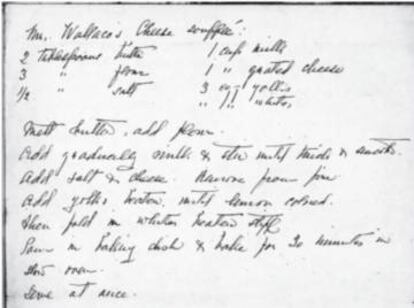 Mrs. Wallace's Cheese soufflé:
2 tablespoons butter 1 cup milk
3 " flour 1 " grated cheese
1/2 " salt 3 egg yolks
" " whites
Melt butter, add flour.
Add gradually milk & stir until thick & smooth.
Add salt & cheese. Remove from fire
Add yolks, beaten until lemon colored.
Then fold in whites beaten stiff
Pour in baking dish & bake for 30 minutes in
slow oven.
Serve at once.